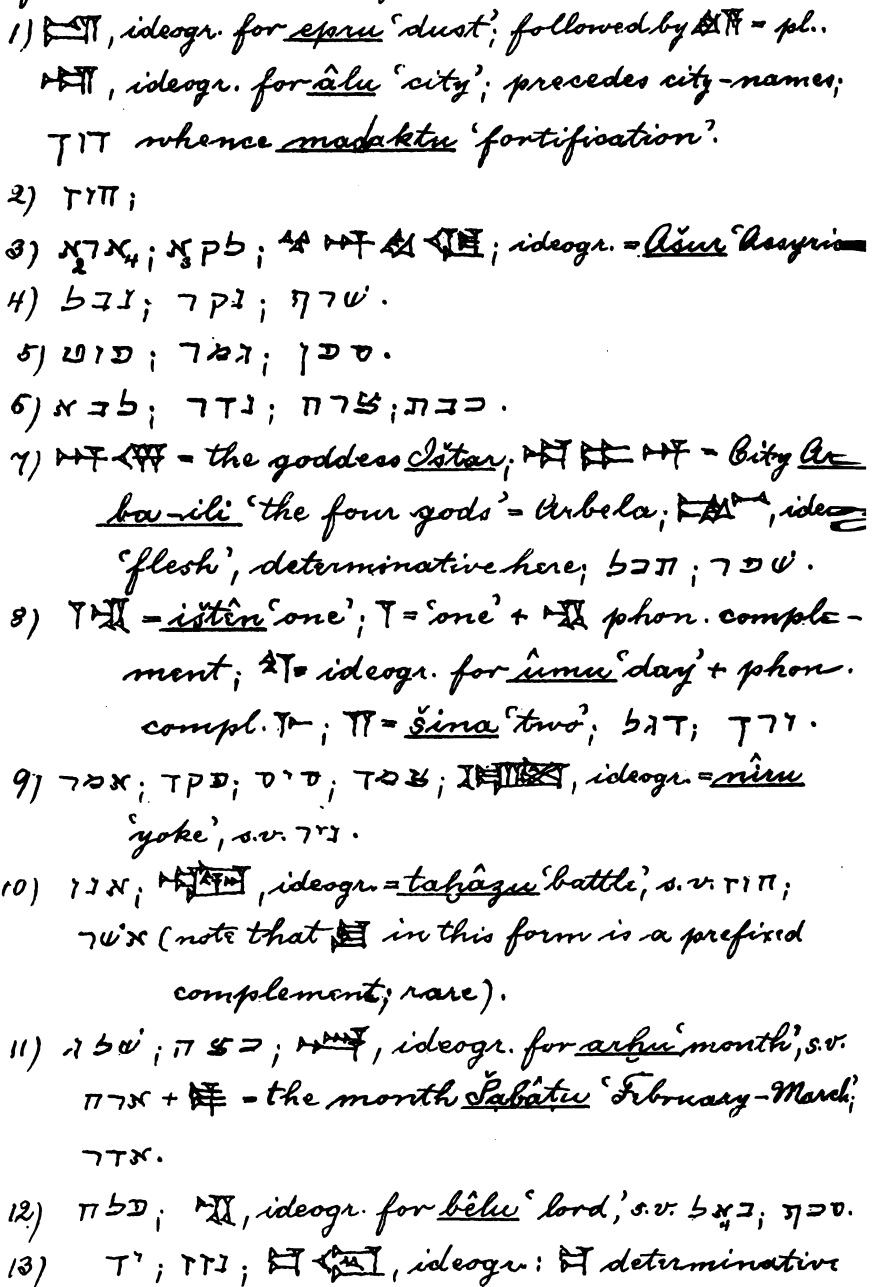 1) 𒅖, ideogr. for epru ‘dust’; followed by 𒄭𒀀 = pl..
𒌷, ideogr. for âlu ‘city’; precedes city-names;
דוך whence madaktu ‘fortification’.
2) חוז;
3) א₄רא₂; לקא₃; ideogr. = Ašur ‘Assyria
4) נבל; נקר; שרף.
5) פוט; גמר; ספן.
6) לבא; נדר; צרח; כבת.
7) 𒀭𒌋𒐊 = the goddess Ištar; 𒌷 𒀭 = City Ar-
ba-ili ‘the four gods’ = Arbela; 𒍜, ideo
‘flesh’, determinative here; תכל; שפר.
8) 𒁹𒂗 = ištên ‘one’; 𒁹 = ‘one’ + 𒂗 phon. comple-
ment; = ideogr. for ûmu ‘day’ + phon.
compl. 𒈨; 𒈫 = šina ‘two’; דגל;
9) אמר; פקד; סיס; צמד; ideogr. = nîru
‘yoke’, s.v. ניר.
10) אנו; ideogr. = taḫâzu ‘battle’, s.v. חוז;
אשר (note that in this form is a prefixed
complement; rare).
11) שלג; כצה; ideogr. for arḫu ‘month’, s.v.
ארח + = the month Šabâṭu ‘February-March’;
אדר.
12) פלח; 𒂗, ideogr. for bêlu ‘lord’, s.v. בא₄ל; סכף.
13) יד; נזז; ideogr.: determinative